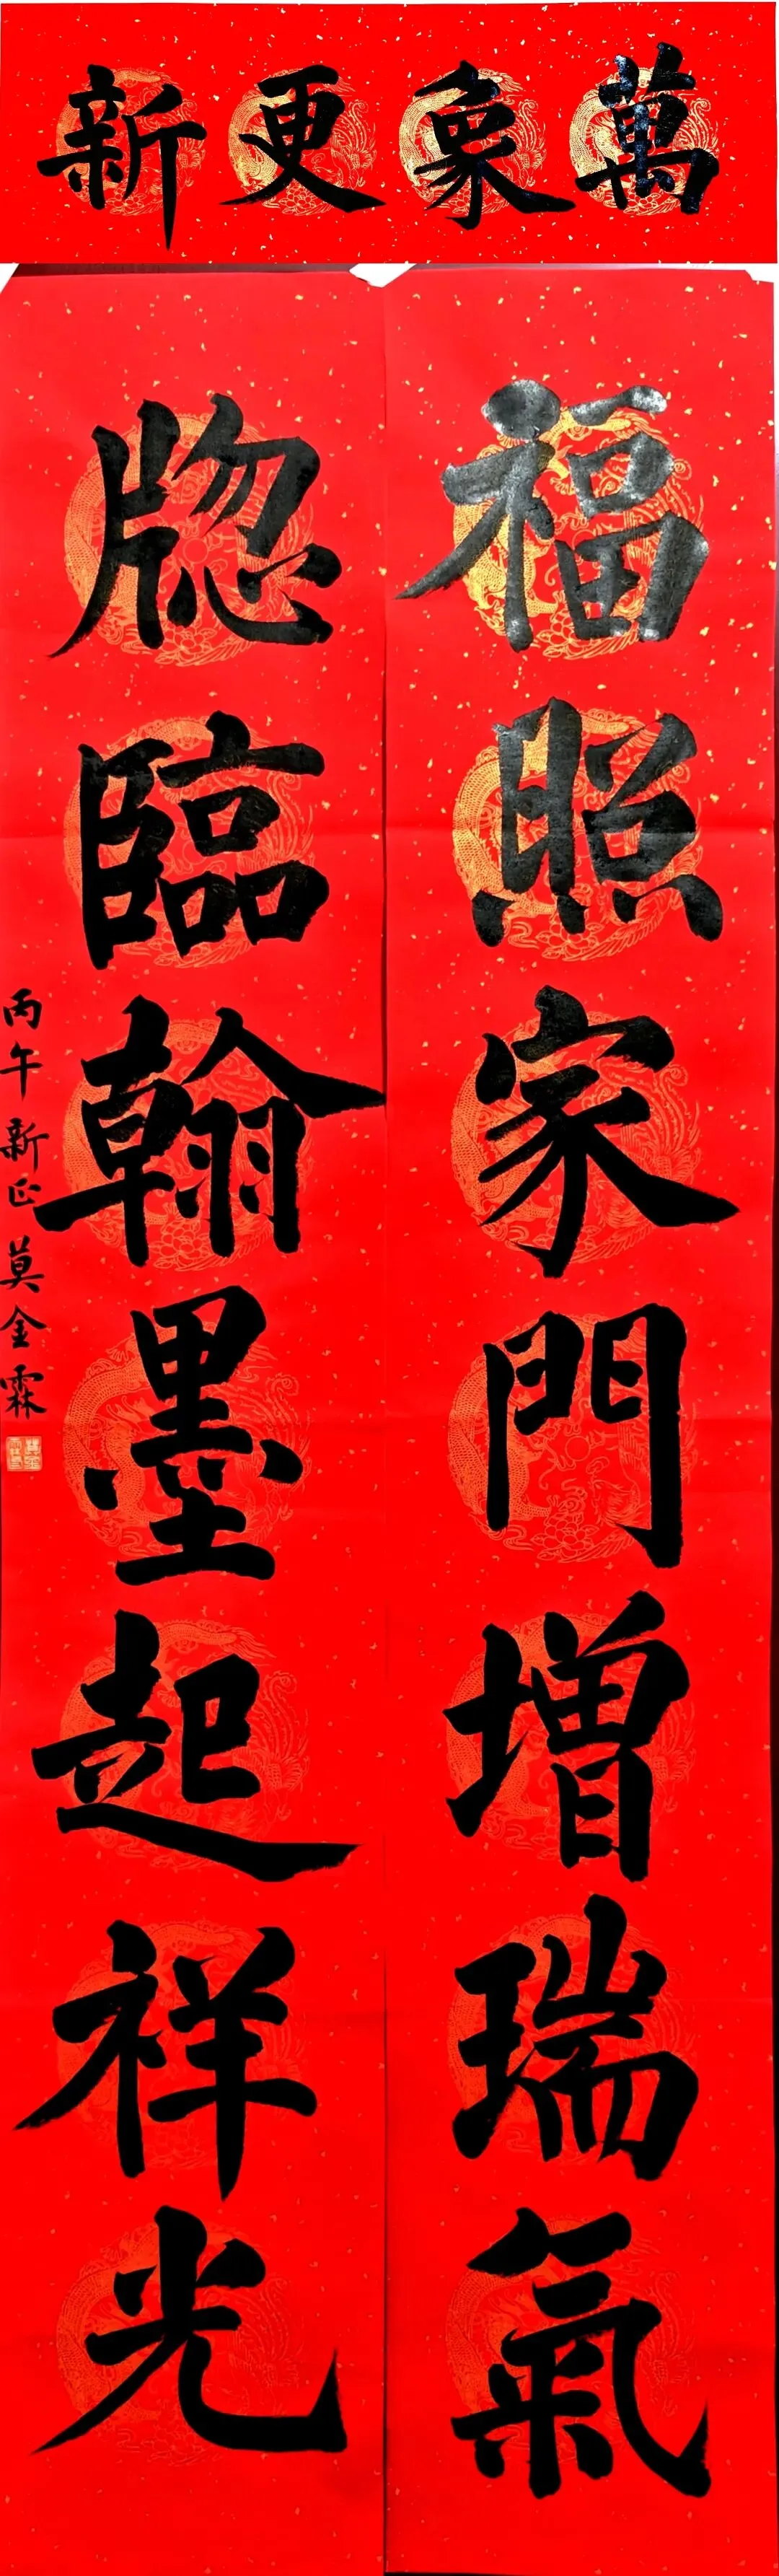 萬象更新
福照家門增瑞氣
牎臨翰墨起祥光
丙午新正莫金霖